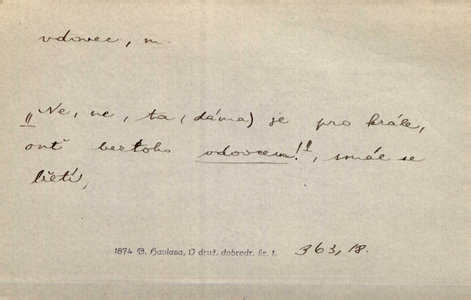 vdovec, m.
„Ne, ne, ta (dáma) je pro krále,
onť beztoho vdovcem!", smál se
1874 B. Havlasa, V druž. dobrodr. kr. 1. 363, 18.